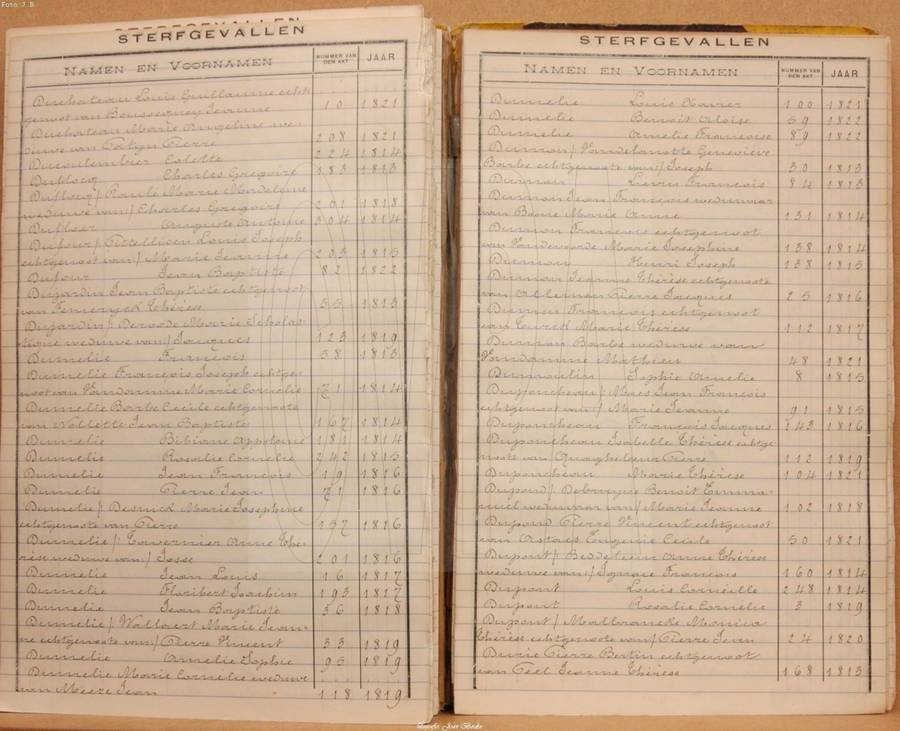 Foto: J. B.
STERFGEVALLEN
NAMEN EN VOORNAMEN NUMMER VAN DEN AKT JAAR
Duchateau Louis Guillaume echt
genoot van Bousseque Jeanne 10 1821
Duchateau Marie Angeline we
duwe van Pierre 208 1821
Ducoulembier Colette 224 1814
Charles Gregoire 183 1813
Marie Madeleine
weduwe van/ Charles Gregoire 201 1818
Auguste Antoine 304 1814
Dufour/ Louis Joseph
echtgenoot van/ Marie Jeanne 203 1815
Dufour Jean Baptiste 82 1822
Dujardin Jean Baptiste echtgenoot
van Temeryck Thérèse 55 1813
Dujardin/ Deroode Marie Scholas
tique weduwe van/ Jacques 123 1819
Dumelie François 58 1813
Dumelie François Joseph echtge
noot van Vandamme Marie Cornelie 71 1814
Dumelie Barbe Cecile echtgenoote
van Nollette Jean Baptiste 167 1814
Dumelie Bibiane Appolonie 181 1814
Dumelie Rosalie Cornelie 242 1815
Dumelie Jean François 19 1816
Dumelie Pierre Jean 71 1816
Dumelie/ Desnick Marie Josephine
echtgenoote van Pierre 157 1816
Dumelie/ Tavernier Anne Thé
rèse weduwe van/ Josse 201 1816
Dumelie Jean Louis 16 1817
Dumelie Floribert Joachim 193 1817
Dumelie Jean Baptiste 36 1818
Dumelie/ Wallaert Marie Jean
ne echtgenoote van/ Pierre Vincent 33 1819
Dumelie Amelie Sophie 95 1819
Dumelie Marie Cornelie weduwe
van Meeze Jean 118 1819
STERFGEVALLEN
NAMEN EN VOORNAMEN NUMMER VAN DEN AKT JAAR
Dumelie Louis Xavier 100 1821
Dumelie Benoit Aloise 59 1822
Dumelie Amelie Françoise 89 1822
Dumon/ Vandelanotte Geneviève
Barbe echtgenoote van/ Joseph 30 1813
Dumon Lievin François 84 1813
Dumon Jean François weduwnaar
van Marie Anne 131 1814
Dumon François echtgenoot
van Vandewoorde Marie Josephine 138 1814
Dumon Henri Joseph 138 1815
Dumon Jeanne Thérèse echtgenoote
van Alleman Pierre Jacques 25 1816
Dumon François echtgenoot
van Marie Thérèse 112 1817
Dumon Barbe weduwe van
Vandamme Mathieu 48 1821
Dumoulin Sophie Amelie 8 1815
Duponcheau/ Maes Jean François
echtgenoot van/ Marie Jeanne 91 1815
Duponcheau François Jacques 143 1816
Duponcheau Isabelle Thérèse echtge
noote van Quaghebeur Pierre 112 1819
Duponcheau Marie Thérèse 104 1821
Dupond/ Debruyne Benoit Emma
nuel weduwnaar van/ Marie Jeanne 102 1818
Dupond Pierre Vincent echtgenoot
van Astaes Eugenie Cecile 50 1821
Dupont/ Anne Thérèse
weduwe van/ Ignace François 160 1814
Dupont Louis Corneille 248 1814
Dupont Rosalie Cornelie 3 1819
Dupont/ Monica
Thérèse echtgenoote van/ Pierre Jean 24 1820
Pierre Bertin echtgenoot
van Jeanne Thérèse 168 1813